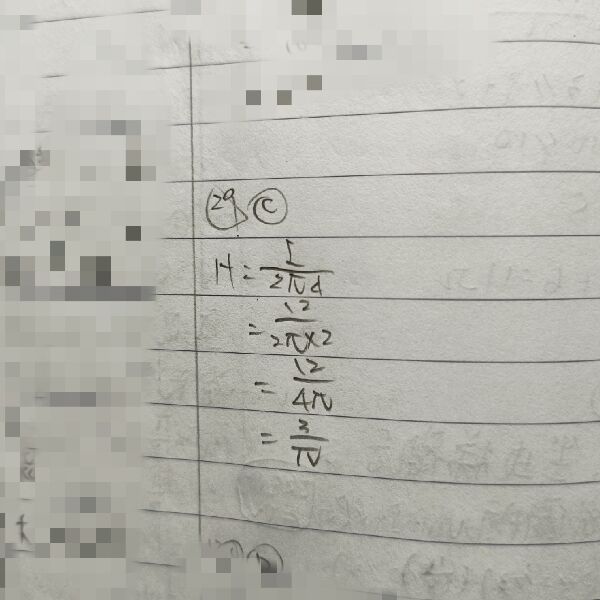 29 C
H = I/2πd
= 12/2π×2
= 12/4π
= 3/π